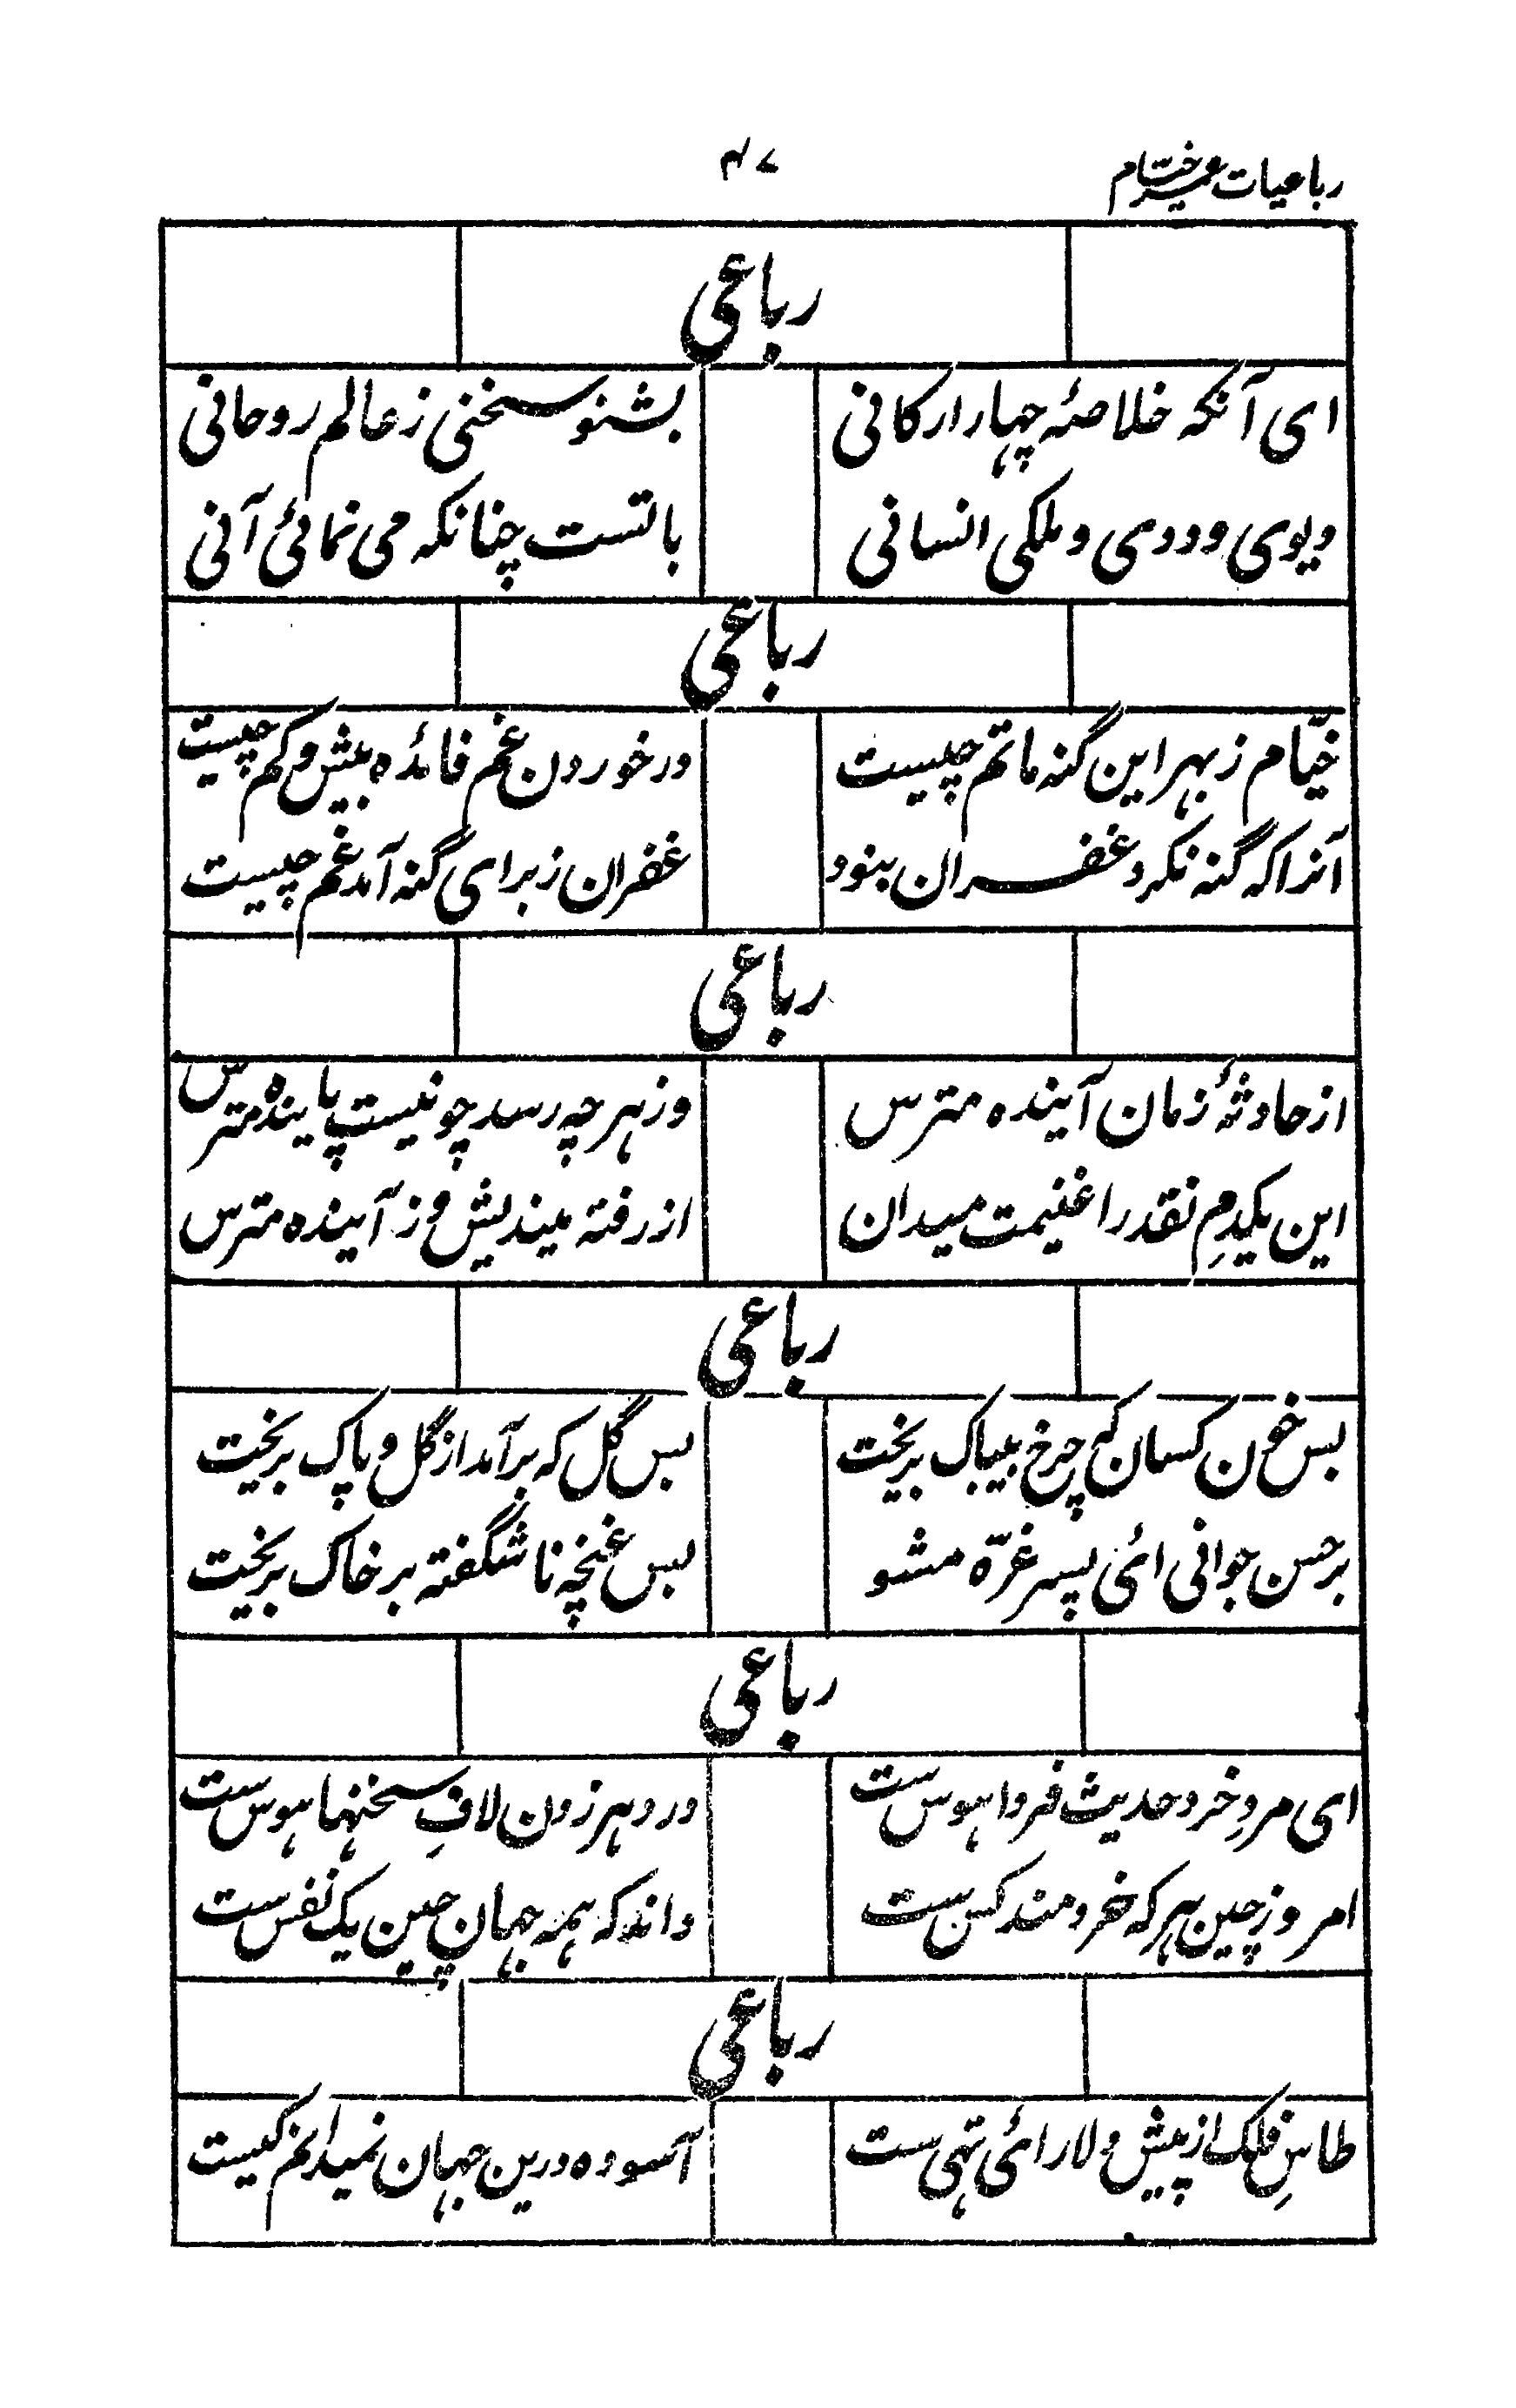 رباعیات عمر خیّام
۴۷
رباعی
ای آنکه خلاصهٔ چهار ارکانی
بشنو سخنی ز عالم روحانی
دیوی و ددی و ملکی انسانی
با تست چنانکه می نمائی آنی
رباعی
خیّام ز بهر این گنه ماتم چیست
در خوردن غم فائده بیش و کم چیست
آنرا که گنه نکرد غفران بنود
غفران ز برای گنه آمد غم چیست
رباعی
از حادثهٔ زمان آینده مترس
وز هر چه رسد چو نیست پاینده مترس
این یکدمِ نقد را غنیمت میدان
از رفته میندیش و ز آینده مترس
رباعی
بس خون کسان که چرخ بیباک بریخت
بس گل که برآمد از گل و پاک بریخت
بر حسن جوانی ائ پسر غرّه مشو
بس غنچه ناشگفته بر خاک بریخت
رباعی
ای مردِ خرد حدیث فردا هوس ست
در دهر زدن لافِ سخنها هوس ست
امروز چنین هر که خردمند کس ست
داند که همه جهان چنین یک نفس ست
رباعی
طاسِ فلک از پیش و لا رائ تهی ست
آسوده درین جهان نمیدانم کیست